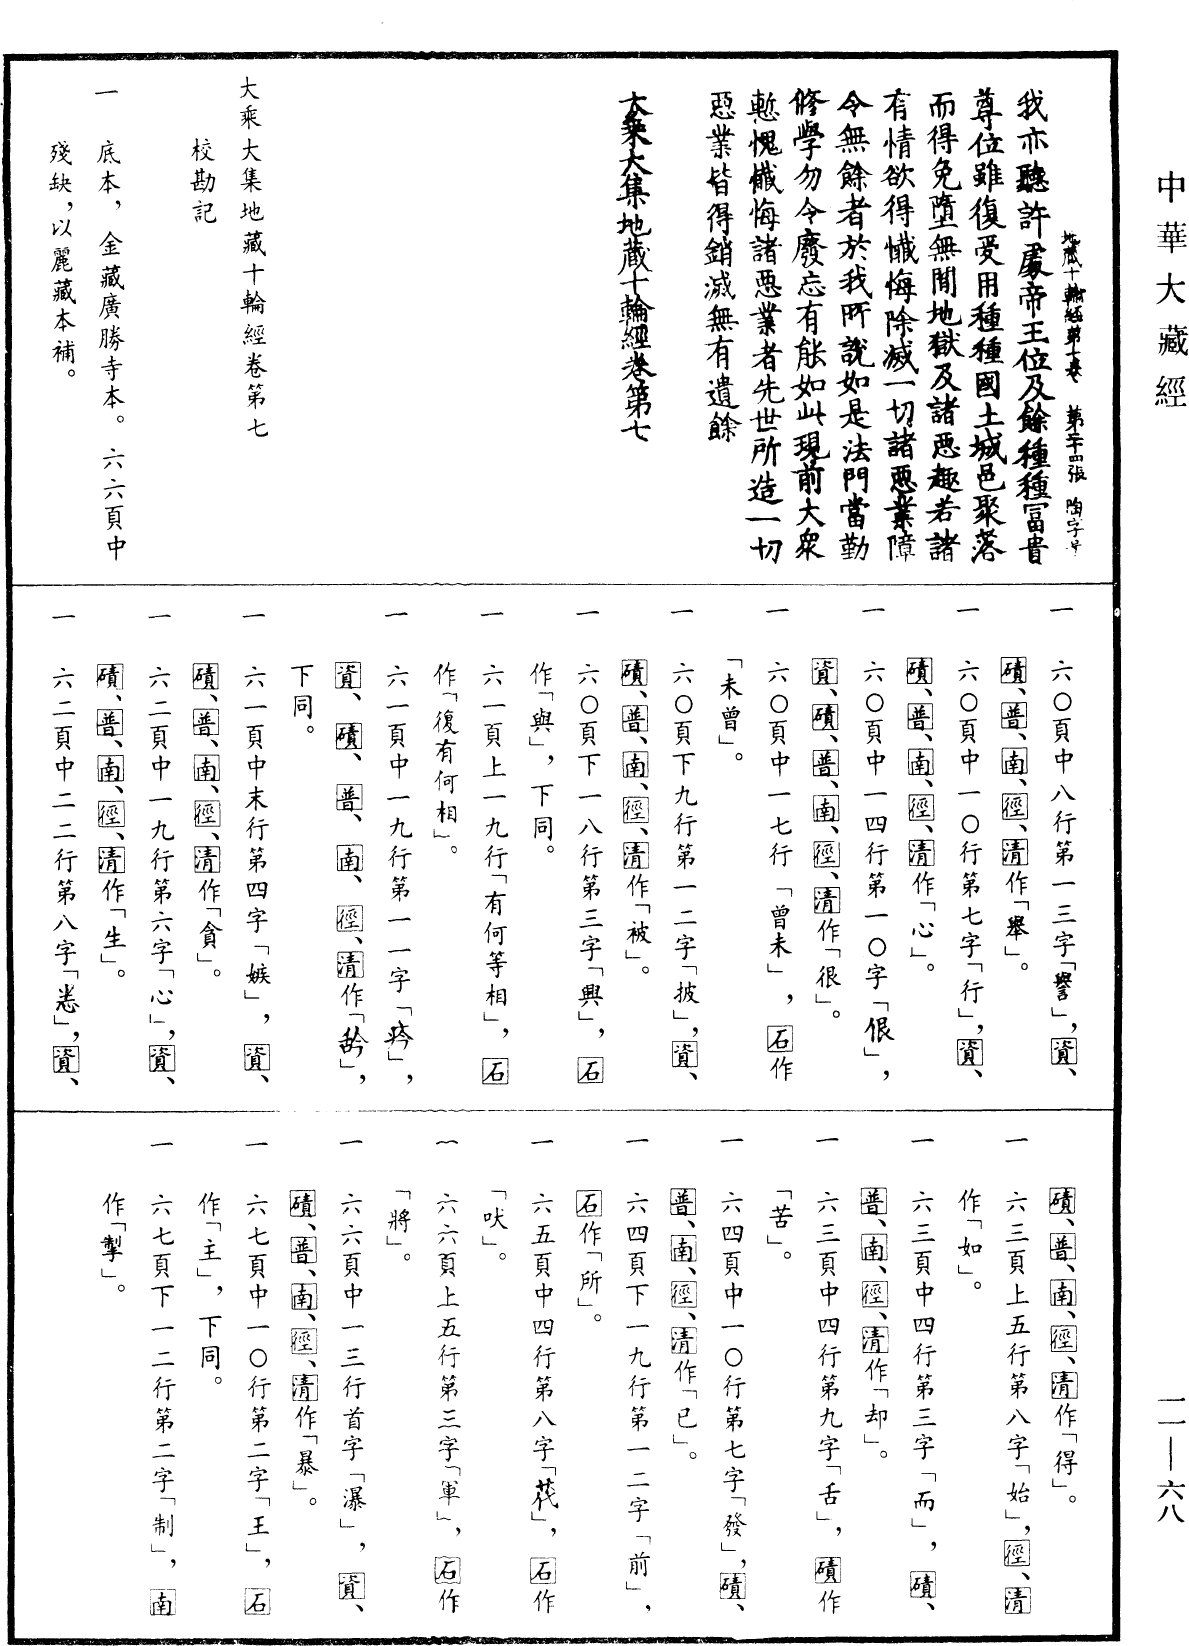 中華大藏經
地藏十輪經第七卷　第二十四張　陶字号
我亦聽許處帝王位及餘種種冨貴
尊位雖復受用種種國土城邑聚落
而得免墮無間地獄及諸惡趣若諸
有情欲得懺悔除滅一切諸惡業障
令無餘者於我所說如是法門當勤
修學勿令廢忘有能如此現前大衆
慙愧懺悔諸惡業者先世所造一切
惡業皆得銷滅無有遺餘
大乘大集地藏十輪經卷第七
大乘大集地藏十輪經卷第七
校勘記
一　底本，金藏廣勝寺本。六六頁中
殘缺，以麗藏本補。
一　六〇頁中八行第一三字「譽」，資、
磧、普、南、徑、清作「舉」。
一　六〇頁中一〇行第七字「行」，資、
磧、普、南、徑、清作「心」。
一　六〇頁中一四行第一〇字「佷」，
資、磧、普、南、徑、清作「很」。
一　六〇頁中一七行「曾未」，石作
「未曾」。
一　六〇頁下九行第一二字「披」，資、
磧、普、南、徑、清作「被」。
一　六〇頁下一八行第三字「興」，石
作「與」，下同。
一　六一頁上一九行「有何等相」，石
作「復有何相」。
一　六一頁中一九行第一一字「疹」，
資、磧、普、南、徑、清作「㱃」，
下同。
一　六一頁中末行第四字「嫉」，資、
磧、普、南、徑、清作「貪」。
一　六二頁中一九行第六字「心」，資、
磧、普、南、徑、清作「生」。
一　六二頁中二二行第八字「恙」，資、
磧、普、南、徑、清作「得」。
一　六三頁上五行第八字「始」，徑、清
作「如」。
一　六三頁中四行第三字「而」，磧、
普、南、徑、清作「却」。
一　六三頁中四行第九字「舌」，磧作
「苦」。
一　六四頁中一〇行第七字「發」，磧、
普、南、徑、清作「已」。
一　六四頁下一九行第一二字「前」，
石作「所」。
一　六五頁中四行第八字「茷」，石作
「吠」。
一　六六頁上五行第三字「軍」，石作
「將」。
一　六六頁中一三行首字「瀑」，資、
磧、普、南、徑、清作「暴」。
一　六七頁中一〇行第二字「王」，石
作「主」，下同。
一　六七頁下一二行第二字「制」，南
作「掣」。
一一—六八